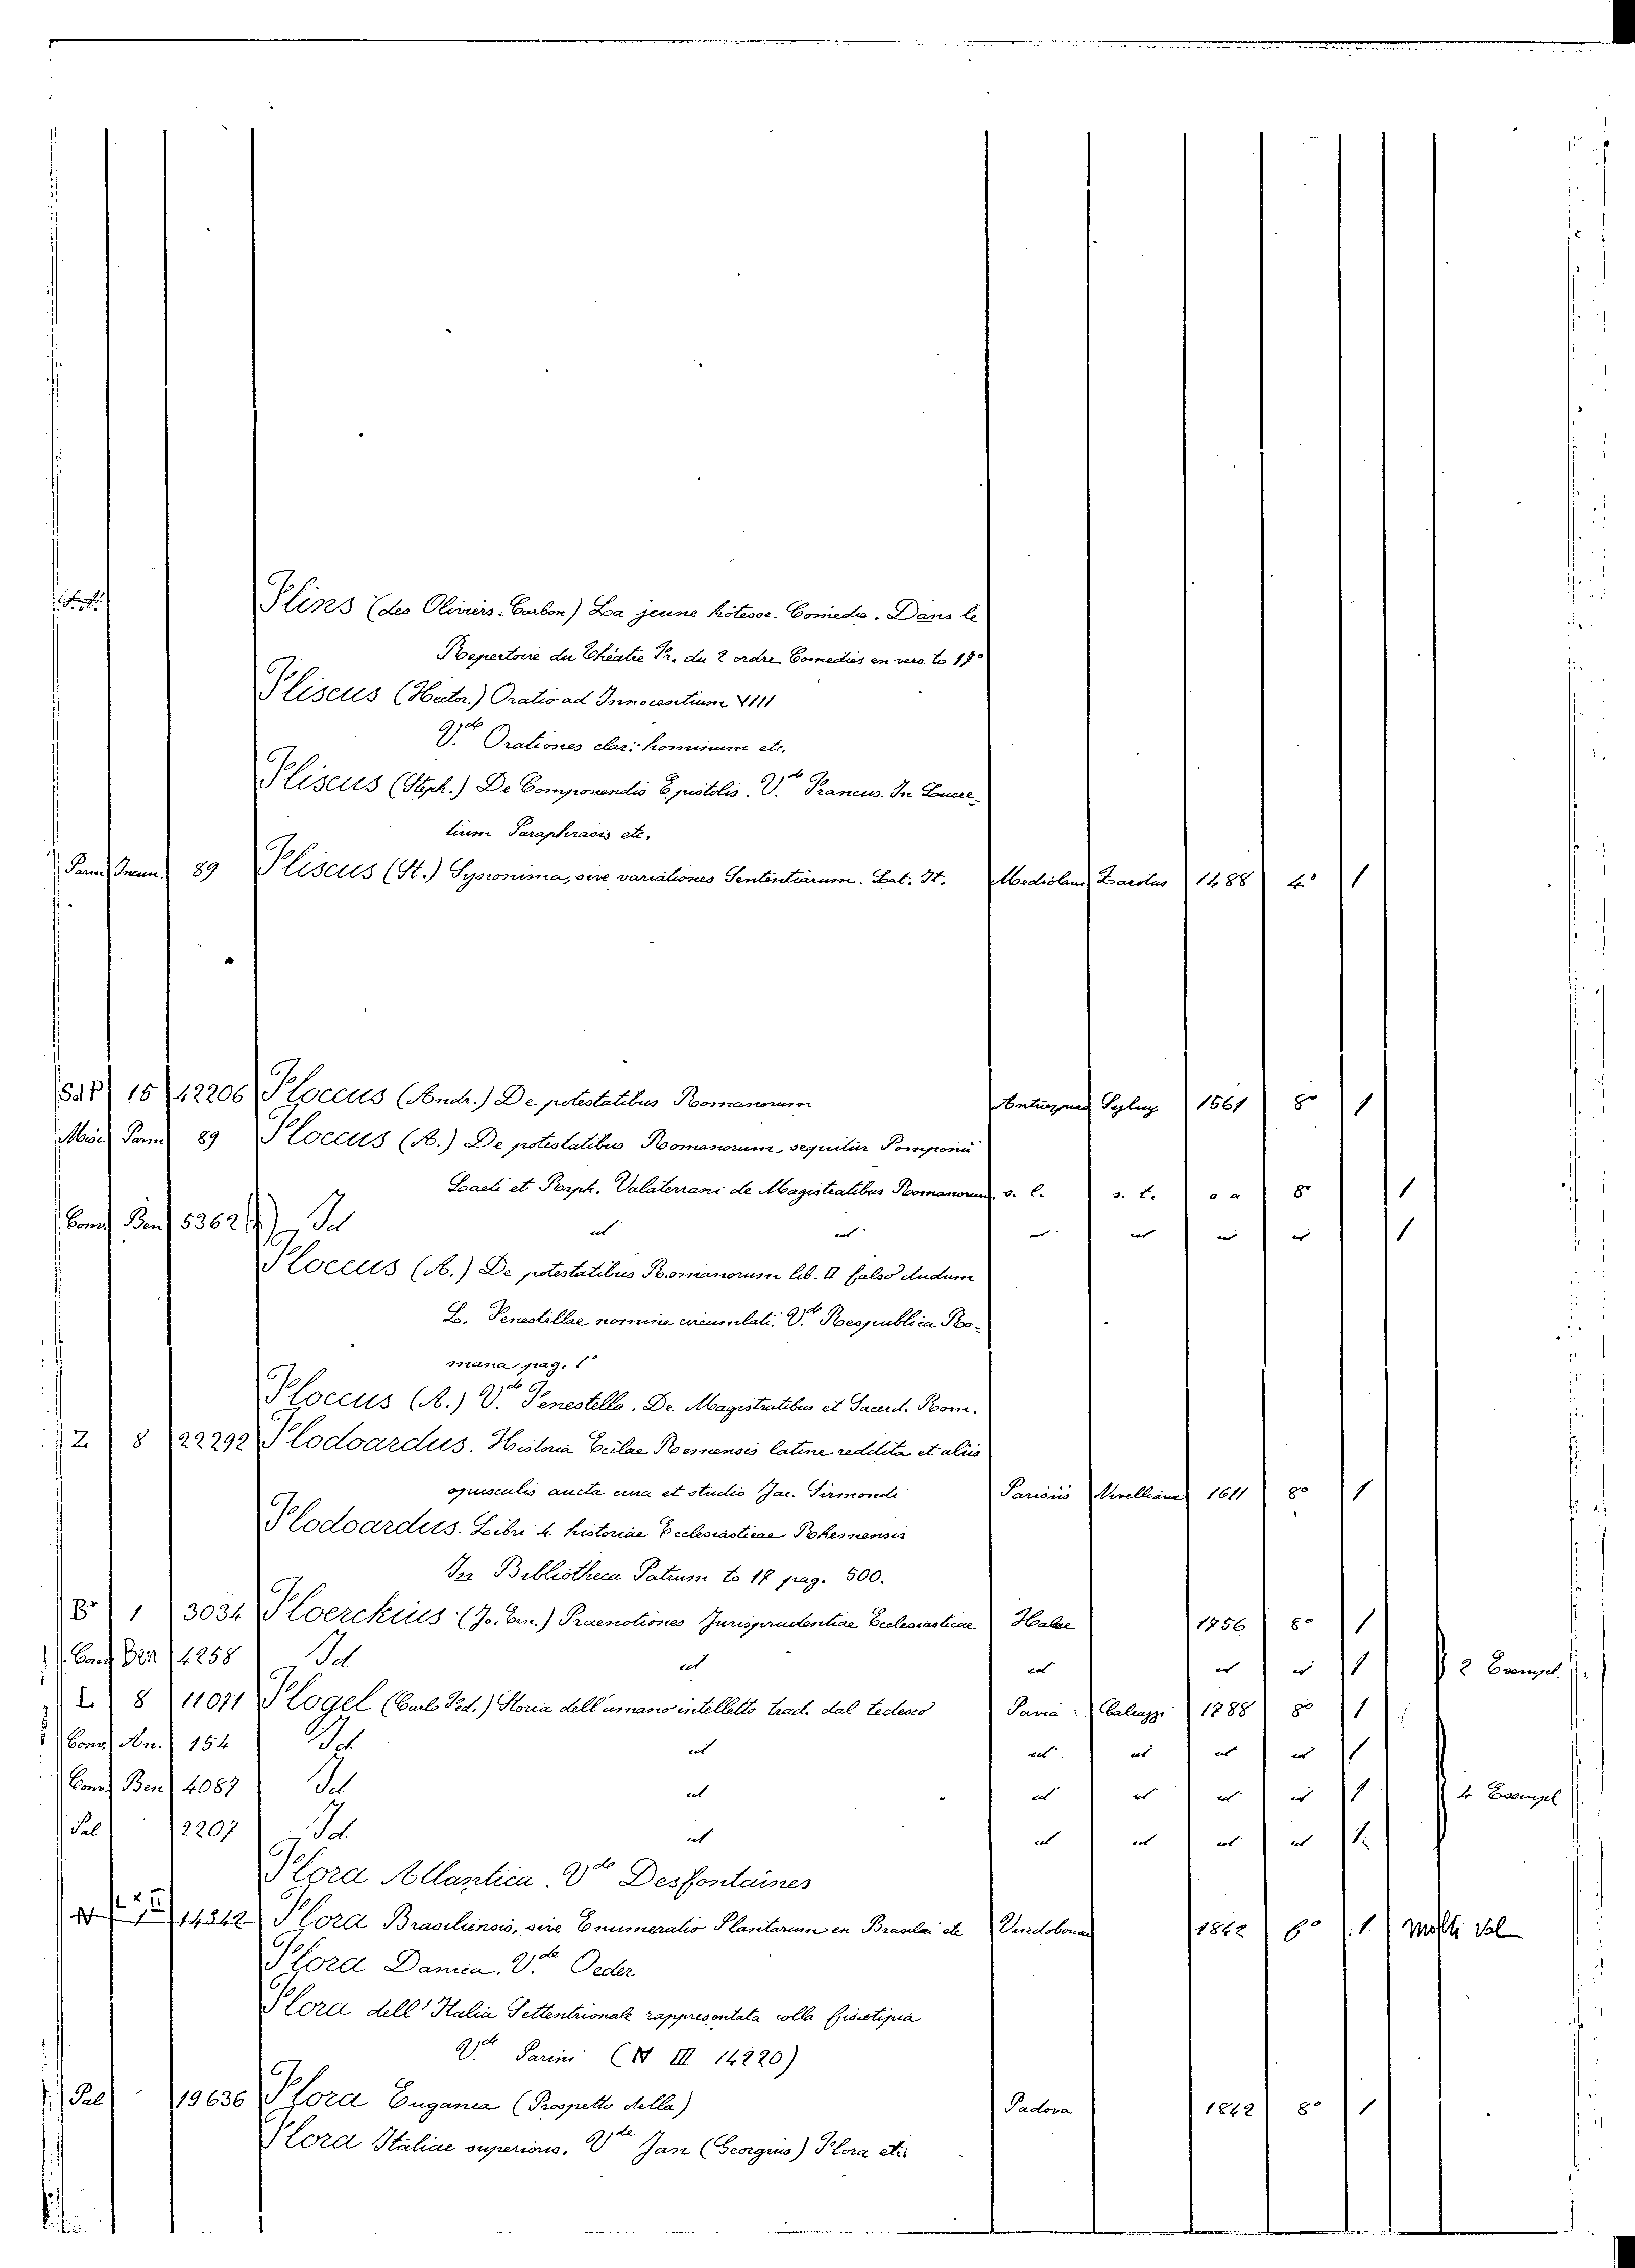 Flins (des Oliviers. Carbon) La jeune hôtesse. Comedie. Dans le
Repertoire du Théatre Fr. du 2 ordre. Comedies en vers. to 17°
Fliscus (Hector.) Oratio ad Innocentium VIII
V.de Orationes clar: hominum etc.
Fliscus (Steph.) De Componendis Epistolis. V.de Francus. In
tium Paraphrasis etc.
Parm Incun. 89 Fliscus (St.) Synonima, sive variationes Sententiarum. Lat. It. Mediolani Zarotus 1488 4° 1
Sal F 15 42206 Floccus (Andr.) De potestatibus Romanorum Antuerpiae 1561 8° 1
Misc. Parm 89 Floccus (A.) De potestatibus Romanorum, sequitur Pomponii
Laeti et Raph. Valaterrani de Magistratibus Romanorum s. l. s. t. a a 8° 1
Conv Ben 5362 Id id id id id id id 1
Floccus (A.) De potestatibus Romanorum lib. II falso dudum
L. Fenestellae nomine circumlati. V.de Respublica Ro-
mana pag. 1°
Floccus (A.) V.de Fenestella. De Magistratibus et Sacerd. Rom.
Z 8 22292 Flodoardus. Historia Ecclae Remensis latine reddita et aliis
opusculis aucta cura et studio Jac. Sirmondi Parisiis Nivelliana 1611 8° 1
Flodoardus. Libri 4 historiae Ecclesiasticae Rhemensis
In Bibliotheca Patrum to 17 pag. 500.
B 1 3034 Floerckius (Jo. Ern.) Praenotiones Jurisprudentiae Ecclesiasticae Halae 1756 8° 1
Conv Ben 4258 Id id id id id 1 2 Esempl.
L 8 11071 Flogel (Carlo Fed.) Storia dell'umano intelletto trad. dal tedesco Pavia Galeazzi 1788 8° 1
Conv An. 154 Id id id id id id 1
Conv Ben 4087 Id id id id id id 1 4 Esempl
Pal 2207 Id. id id id id id 1.
Flora Atlantica. V.de Desfontaines
14342 Flora Brasiliensis, sive Enumeratio Plantarum en Brasilai etc Vindobonae 1842 6° 1. Molti Vol
Flora Danica. V.de Oeder
Flora dell'Italia Settentrionale rappresentata colla fisiotipia
V.de Parini (N III 14220)
Pal 19636 Flora Euganea (Prospetto della) Padova 1842 8° 1
Flora Italiae superioris. V.de Jan (Georgius) Flora etc